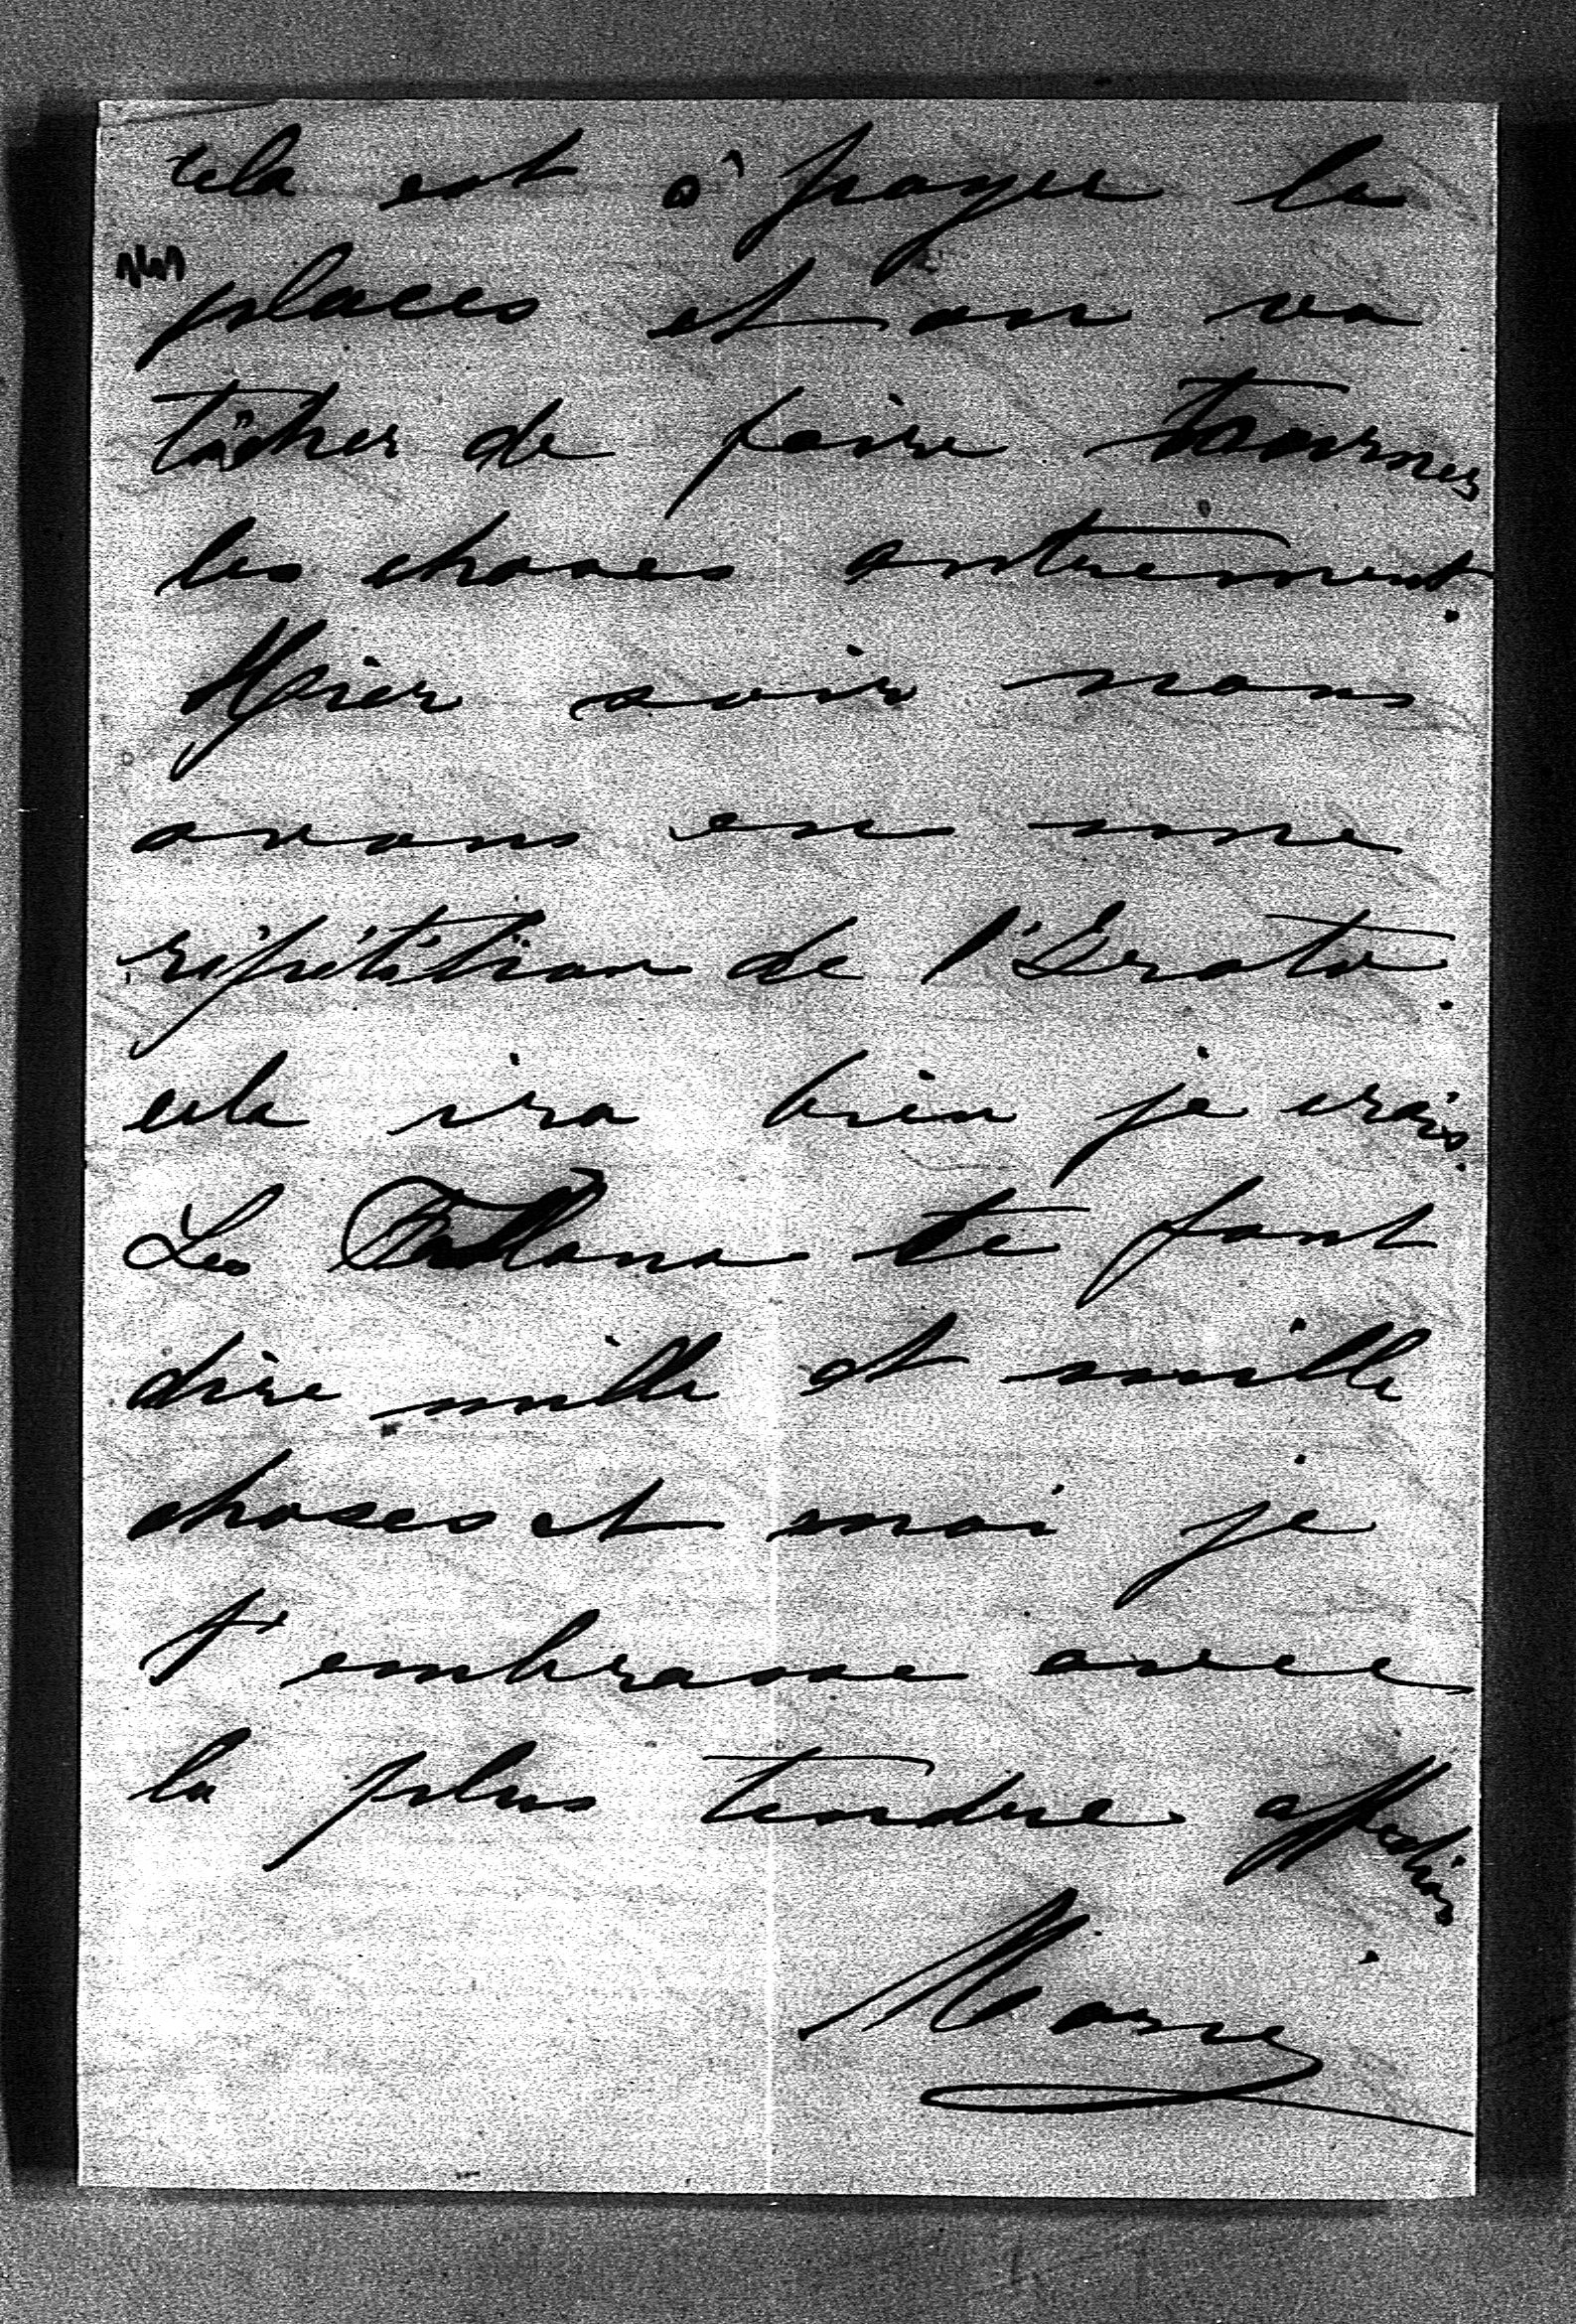 cela est à payer les
places et on va
tâcher de faire tourner
les choses autrement.
Hier soir nous
avons eu une
répétition de l'Erato.
cela ira bien je crois.
Les te font
dire mille et mille
choses et moi je
t'embrasse avec
la plus tendre affection
Marie